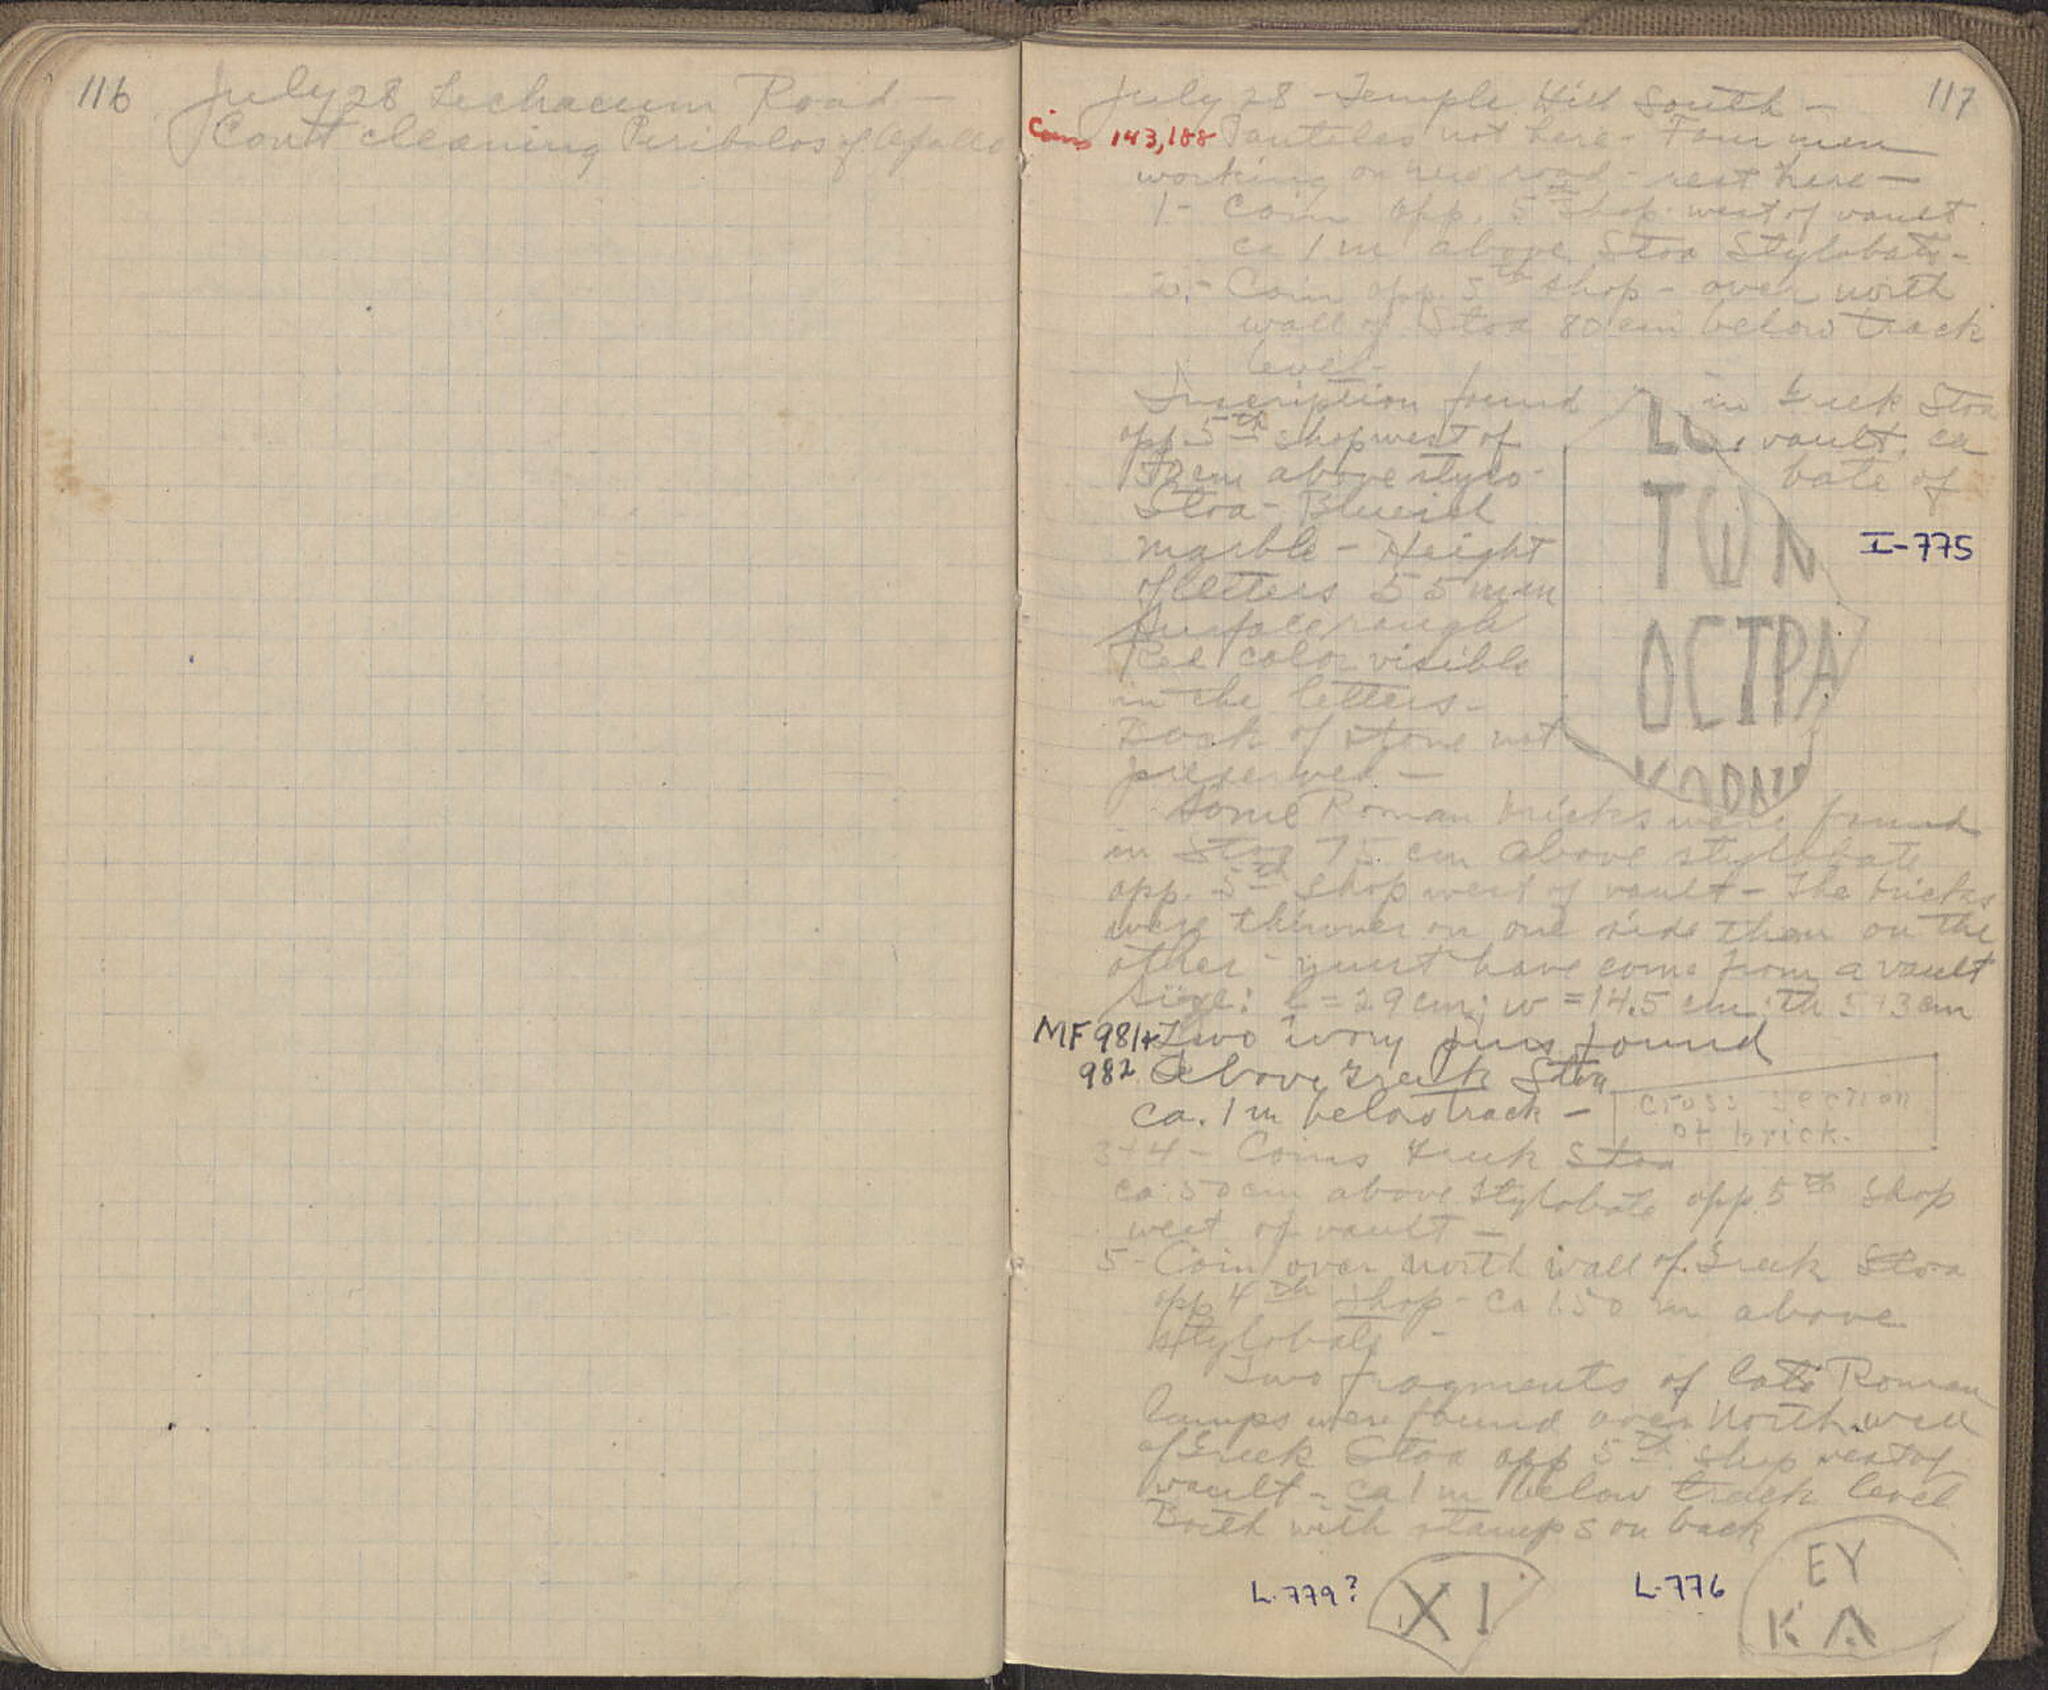 116 July 28 Lechaeum Road —
Cont cleaning Peribolos of Apollo
July 28 - Temple Hill South - 117
Coins 143, 188 Panteles not here - Four men
working on new road - rest here —
1 - Coin opp. 5th shop west of vault
ca 1 m above Stoa Stylobate -
2. - Coin opp. 5th shop - over north
wall of Stoa 80 cm below track
level -
Inscription found in Greek Stoa
opp 5th shop west of vault, ca
cm above stylobate of
Stoa - Blueish
marble - Height
of letters 55 mm
Surface rough
Red color visible
in the letters -
Back of stone not
preserved —
ΤѠΝ
ΟϹΤΡΑ
I-775
Some Roman bricks were found
in Stoa 75 cm above stylobate
opp. 5th shop west of vault - The bricks
were thinner on one side than on the
other - must have come from a vault
Size: l = 29 cm; w = 14.5 cm; th 5 13 cm
MF 981+ Two ivory pins found
982 above Greek Stoa
ca. 1 m below track -
cross section
of brick.
3+4 - Coins Greek Stoa
ca 50 cm above stylobate opp. 5th shop
west of vault —
5 - Coin over north wall of Greek Stoa
opp 4th shop - ca 1.50 m above
stylobate -
Two fragments of late Roman
lamps were found over North wall
of Greek Stoa opp 5th shop west of
vault - ca 1 m below track level
Both with stamps on back
L-779? XI
L-776 ΕΥ
ΚΑ